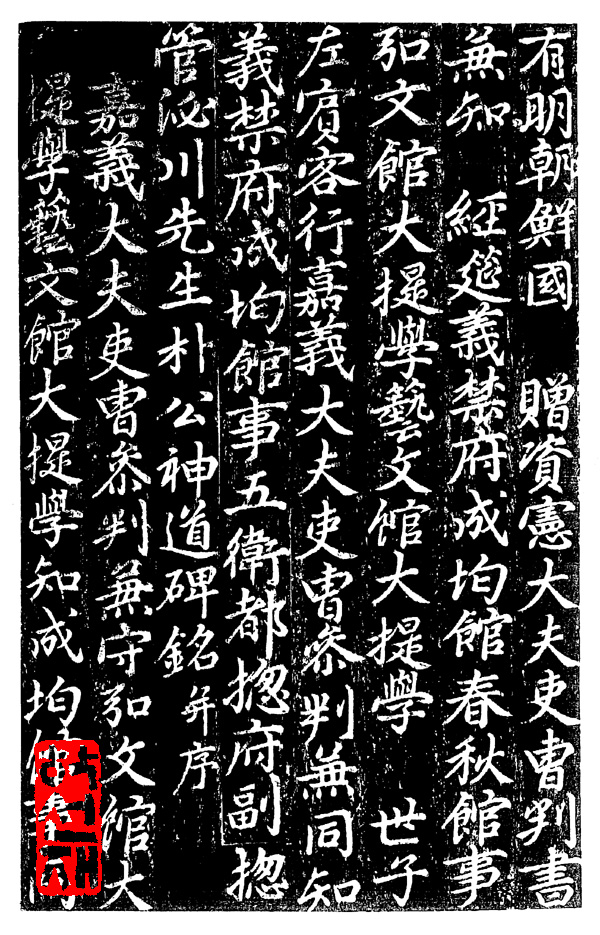 有明朝鮮國 贈資憲大夫吏曹判書
兼知 經筵義禁府成均館春秋館事
弘文館大提學藝文館大提學 世子
左賓客行嘉義大夫吏曹參判兼同知
義禁府成均館事五衛都摠府副摠
管泌川先生朴公神道碑銘并序
嘉義大夫吏曹參判兼守弘文館大
提學藝文館大提學知成均館事同